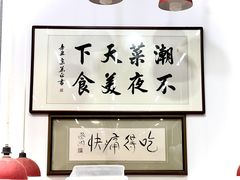 潮菜天下
不夜美食
吃得痛快